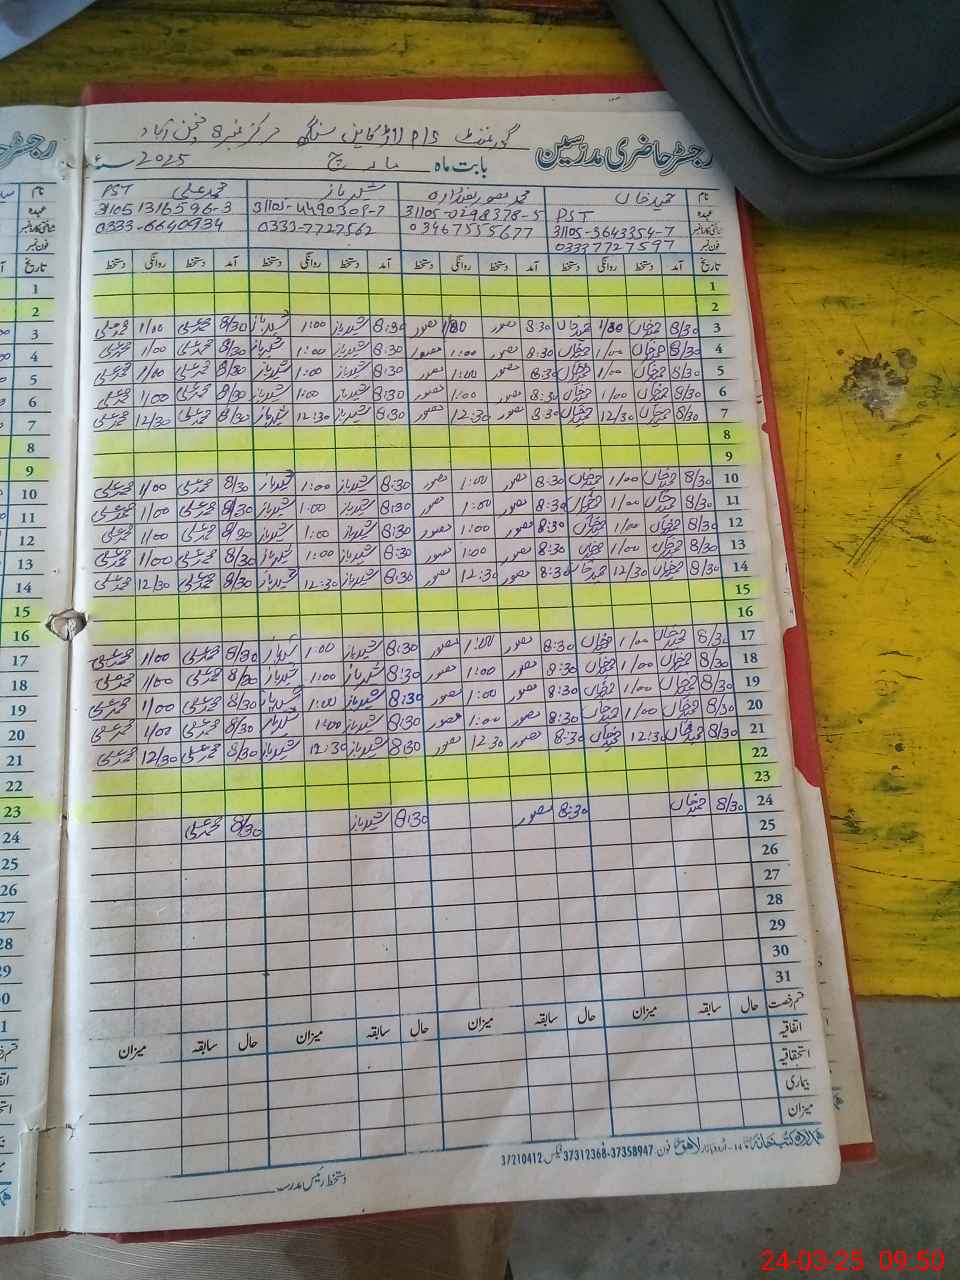 رجسٹر حاضری مدرسین
گورنمنٹ P/S مرکز نمبر 8
بابت ماہ مارچ 2025
نام حمید خاں محمد منصور شہباز محمد علی
عہدہ PST PST
شناختی کارڈ نمبر 31105-3643354-7 31105-0298378-5 31105-4490309-7 31105 1316596-3
فون نمبر 03337727597 03467555677 0333-7727562 0333-6640934
تاریخ آمد دستخط روانگی دستخط آمد دستخط روانگی دستخط آمد دستخط روانگی دستخط آمد دستخط روانگی دستخط
1
2
3 8/30 حمید خاں 1/00 حمید خاں 8:30 منصور 1/00 منصور 8:30 شہباز 1:00 شہباز 8/30 محمد علی 1/00 محمد علی
4 8/30 حمید خاں 1/00 حمید خاں 8:30 منصور 1:00 منصور 8:30 شہباز 1:00 شہباز 8/30 محمد علی 1/00 محمد علی
5 8/30 حمید خاں 1/00 حمید خاں 8:30 منصور 1:00 منصور 8:30 شہباز 1:00 شہباز 8/30 محمد علی 1/00 محمد علی
6 8/30 حمید خاں 1/00 حمید خاں 8:30 منصور 1:00 منصور 8:30 شہباز 1:00 شہباز 8/30 محمد علی 1/00 محمد علی
7 8/30 حمید خاں 12/30 حمید خاں 8:30 منصور 12:30 منصور 8:30 شہباز 12:30 شہباز 8/30 محمد علی 12/30 محمد علی
8
9
10 8/30 حمید خاں 1/00 حمید خاں 8:30 منصور 1:00 منصور 8:30 شہباز 1:00 شہباز 8/30 محمد علی 1/00 محمد علی
11 8/30 حمید خاں 1/00 حمید خاں 8:30 منصور 1:00 منصور 8:30 شہباز 1:00 شہباز 8/30 محمد علی 1/00 محمد علی
12 8/30 حمید خاں 1/00 حمید خاں 8:30 منصور 1:00 منصور 8:30 شہباز 1:00 شہباز 8/30 محمد علی 1/00 محمد علی
13 8/30 حمید خاں 1/00 حمید خاں 8:30 منصور 1:00 منصور 8:30 شہباز 1:00 شہباز 8/30 محمد علی 1/00 محمد علی
14 8/30 حمید خاں 12/30 حمید خاں 8:30 منصور 12:30 منصور 8:30 شہباز 12:30 شہباز 8/30 محمد علی 12/30 محمد علی
15
16
17 8/30 حمید خاں 1/00 حمید خاں 8:30 منصور 1:00 منصور 8:30 شہباز 1:00 شہباز 8/30 محمد علی 1/00 محمد علی
18 8/30 حمید خاں 1/00 حمید خاں 8:30 منصور 1:00 منصور 8:30 شہباز 1:00 شہباز 8/30 محمد علی 1/00 محمد علی
19 8/30 حمید خاں 1/00 حمید خاں 8:30 منصور 1:00 منصور 8:30 شہباز 1:00 شہباز 8/30 محمد علی 1/00 محمد علی
20 8/30 حمید خاں 1/00 حمید خاں 8:30 منصور 1:00 منصور 8:30 شہباز 1:00 شہباز 8/30 محمد علی 1/00 محمد علی
21 8/30 حمید خاں 12:30 حمید خاں 8:30 منصور 12:30 منصور 8:30 شہباز 12:30 شہباز 8/30 محمد علی 12/30 محمد علی
22
23
24 8/30 حمید خاں 8:30 منصور 8:30 شہباز 8/30 محمد علی
25
26
27
28
29
30
31
قسم رخصت حال سابقہ میزان حال سابقہ میزان حال سابقہ میزان حال سابقہ میزان
اتفاقیہ
استحقاقیہ
بیماری
میزان
اردو بازار لاہور فون: 37358947-37312368 فیکس 37210412
دستخط رئیس مدرسہ
24-03-25 09:50